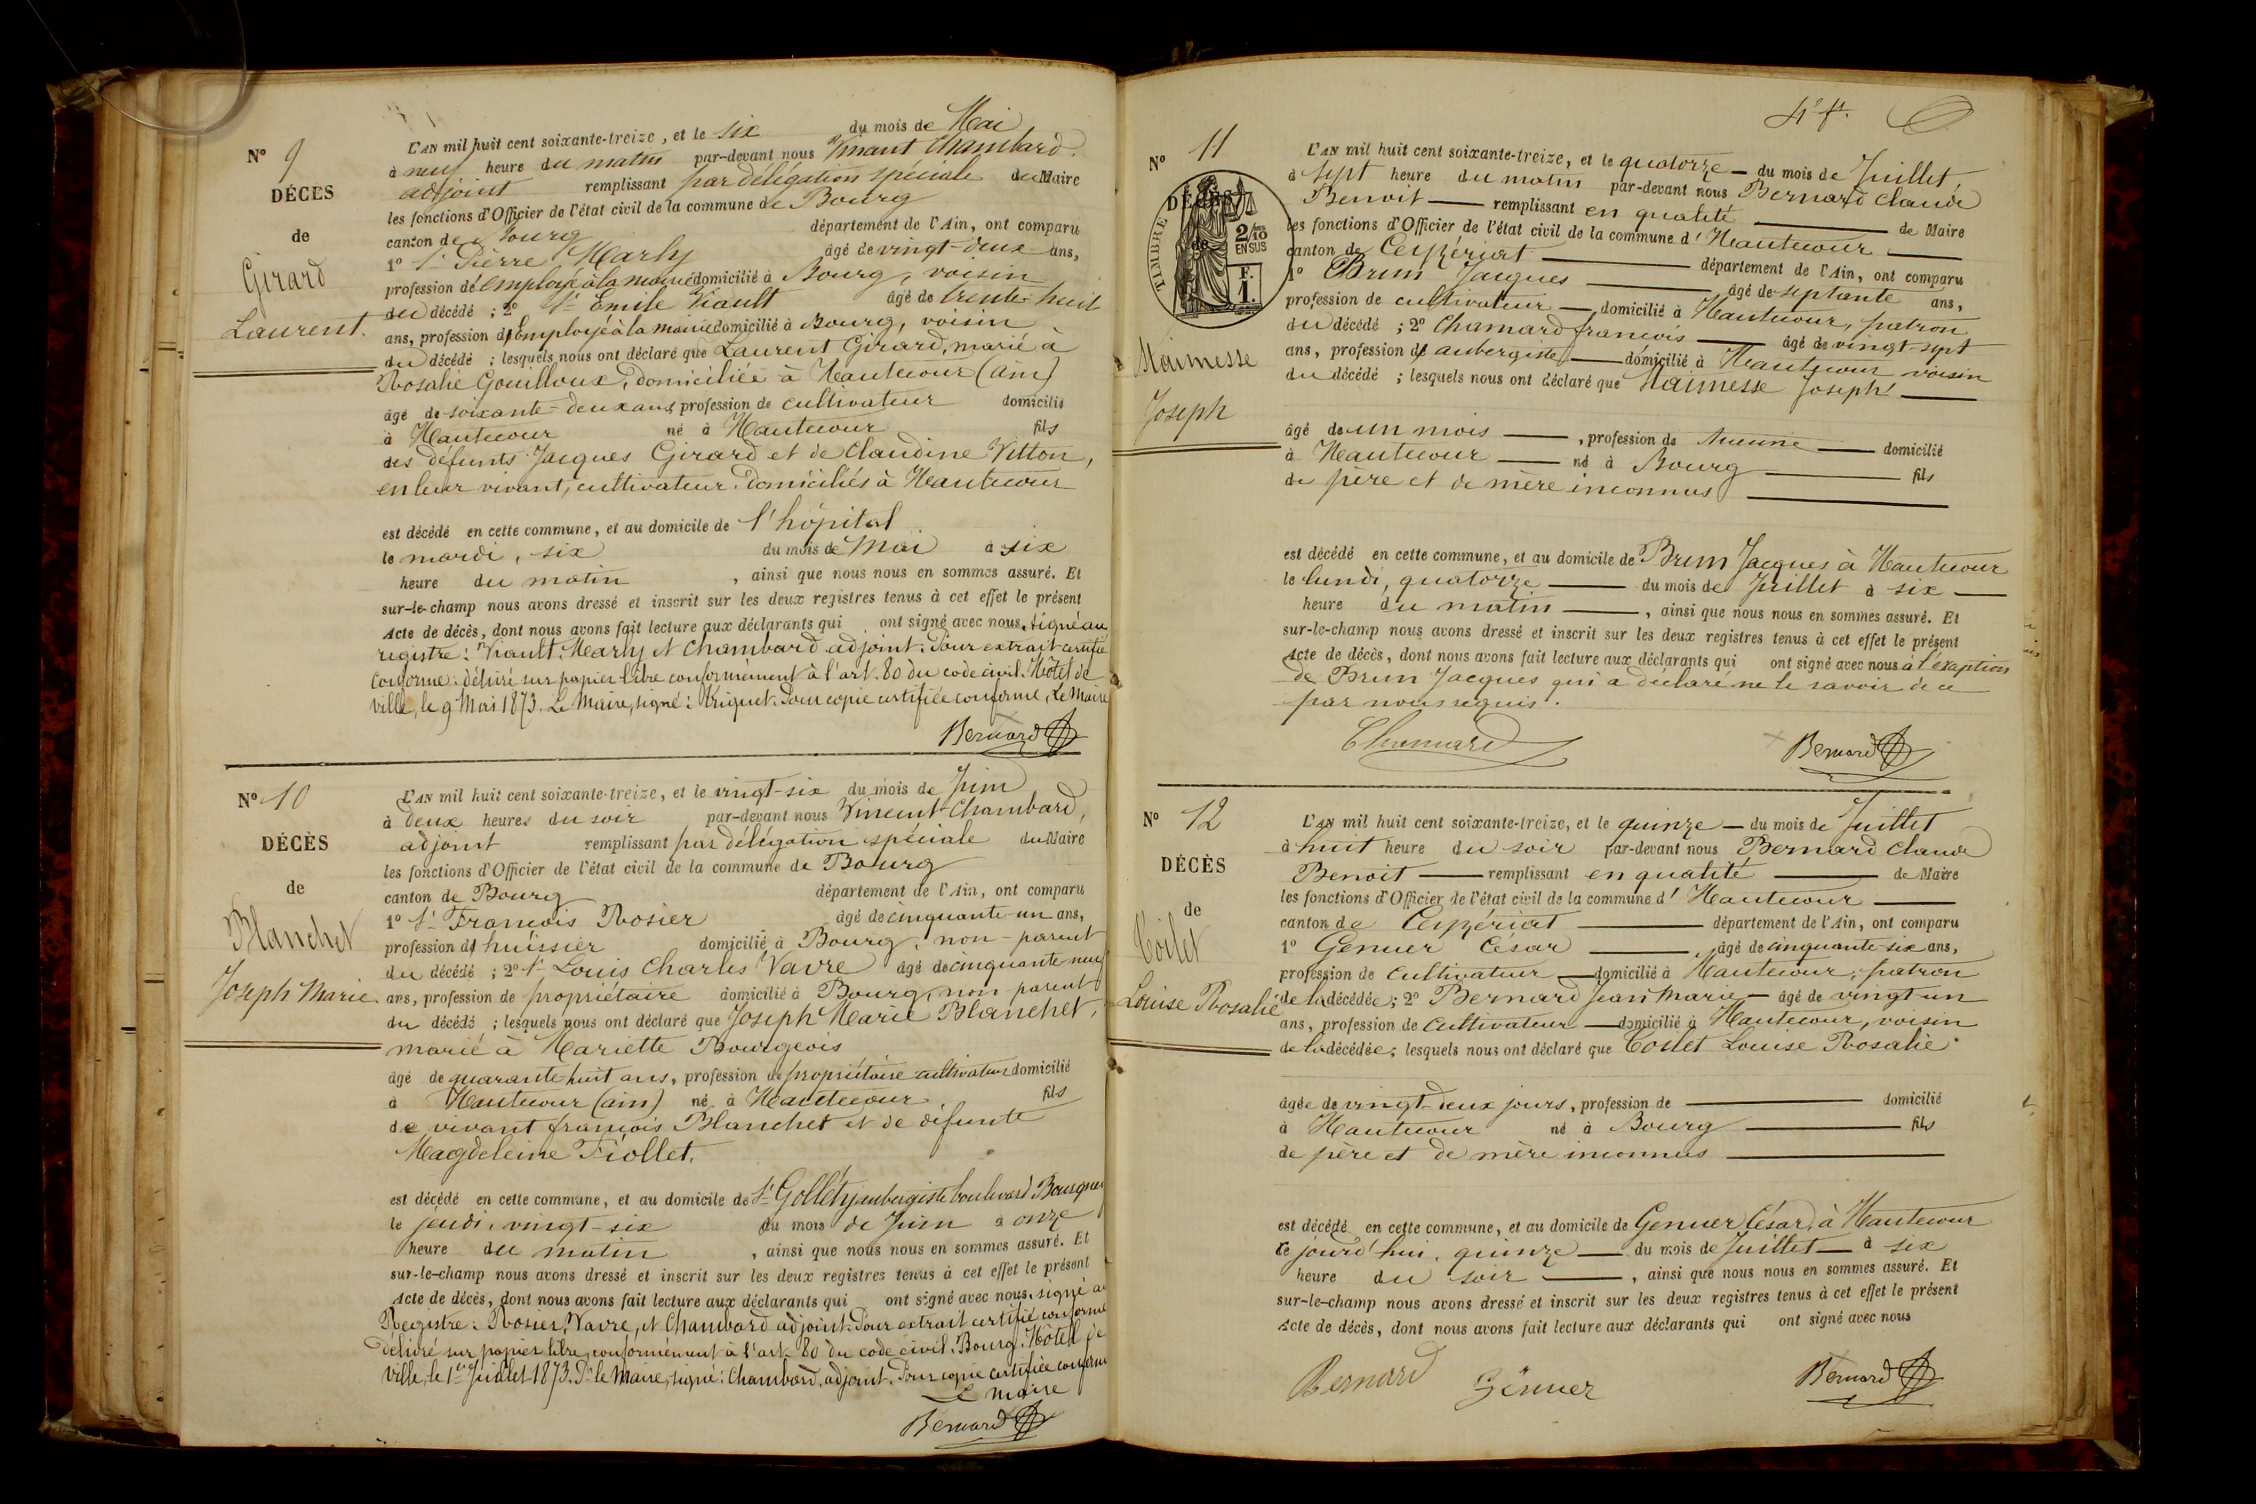 Nº 9
DÉCÈS
de
Girard
Laurent.
L'AN mil huit cent soixante-treize, et le six du mois de Mai
à neuf heure du matin par-devant nous Vincent Chambard.
adjoint remplissant par délégation spéciale du Maire
les fonctions d'Officier de l'état civil de la commune de Bourg
canton de Bourg département de l'Ain, ont comparu
1º Sr Pierre Marly âgé de vingt-deux ans,
profession de employé à la mairie domicilié à Bourg, voisin
du décédé ; 2º Sr Emile Viault âgé de trente huit
ans, profession d'Employé à la mairie domicilié à Bourg, voisin
du décédé ; lesquels nous ont déclaré que Laurent Girard, marié à
Rosalie Gouilloux, domiciliée à Hautecour (ain)
âgé de soixante-deux ans, profession de cultivateur domicilié
à Hautecour né à Hautecour fils
des défunts Jacques Girard et de Claudine Vitton,
en leur vivant, cultivateur. domiciliés à Hautecour
est décédé en cette commune, et au domicile de l'hôpital
le mardi, six du mois de Mai à six
heure du matin , ainsi que nous nous en sommes assuré. Et
sur-le-champ nous avons dressé et inscrit sur les deux registres tenus à cet effet le présent
Acte de décès, dont nous avons fait lecture aux déclarants qui ont signé avec nous. signé au
registre : Viault. Marly et Chambard adjoint. Pour extrait certifié
conforme. délivré sur papier libre conformément à l'art. 80 du code civil. Hôtel de
ville, le 9 Mai 1873. Le Maire, signé : Triquet. Pour copie certifiée conforme, Le Maire
Bernard
Nº 10
DÉCÈS
de
Blanchet
Joseph Marie.
L'AN mil huit cent soixante-treize, et le vingt-six du mois de Juin
à deux heures du soir par-devant nous Vincent Chambard,
adjoint remplissant par délégation spéciale du Maire
les fonctions d'Officier de l'état civil de la commune de Bourg
canton de Bourg département de l'Ain, ont comparu
1º Sr François Rosier âgé de cinquante-un ans,
profession d'huissier domicilié à Bourg, non-parent
du décédé ; 2º Sr Louis Charles Vavre âgé de cinquante neuf
ans, profession de propriétaire domicilié à Bourg, non parent
du décédé ; lesquels nous ont déclaré que Joseph Marie Blanchet,
marié à Mariette Bourgeois
âgé de quarante huit ans, profession de propriétaire cultivateur domicilié
à Hautecour (ain) né à Hautecour fils
de vivant françois Blanchet et de défunte
Magdeleine Fiollet.
est décédé en cette commune, et au domicile de Sr Golléty aubergiste boulevard Bourgneuf
le jeudi, vingt-six du mois de Juin à onze
heure du matin , ainsi que nous nous en sommes assuré. Et
sur-le-champ nous avons dressé et inscrit sur les deux registres tenus à cet effet le présent
Acte de décès, dont nous avons fait lecture aux déclarants qui ont signé avec nous. signé au
Registre : Rosier, Vavre, et Chambard adjoint. Pour extrait certifié conforme
délivré sur papier libre, conformément à l'art. 80 du code civil. Bourg, Hôtel de
ville, le 1er Juillet 1873. Pr le Maire, signé : Chambard, adjoint. Pour copie certifiée conforme
Le maire
Bernard
4e ft.
Nº 11
DÉCÈS
de
TIMBRE
2/10
EN SUS
F.
1.
Maimesse
Joseph
L'AN mil huit cent soixante-treize, et le quatorze du mois de Juillet,
à sept heure du matin par-devant nous Bernard Claude
Benoit remplissant en qualité de Maire
les fonctions d'Officier de l'état civil de la commune d'Hautecour
canton de Ceyzériat département de l'Ain, ont comparu
1º Brun Jacques âgé de septante ans,
profession de cultivateur domicilié à Hautecour, patron
du décédé ; 2º Chamard françois âgé de vingt-sept
ans, profession d'aubergiste domicilié à Hautecour voisin
du décédé ; lesquels nous ont déclaré que Maimesse Joseph
âgé de un mois , profession de Aucune domicilié
à Hautecour né à Bourg fils
de père et de mère inconnus
est décédé en cette commune, et au domicile de Brun Jacques à Hautecour
le lundi, quatorze du mois de Juillet à six
heure du matin , ainsi que nous nous en sommes assuré. Et
sur-le-champ nous avons dressé et inscrit sur les deux registres tenus à cet effet le présent
Acte de décès, dont nous avons fait lecture aux déclarants qui ont signé avec nous à l'exeption
de Brun Jacques qui a déclaré ne le savoir de ce
par nous requis.
Chamard Bernard
Nº 12
DÉCÈS
de
Coilet
Louise Rosalie
L'AN mil huit cent soixante-treize, et le quinze du mois de Juillet
à huit heure du soir par-devant nous Bernard Claude
Benoit remplissant en qualité de Maire
les fonctions d'Officier de l'état civil de la commune d'Hautecour
canton de Ceyzériat département de l'Ain, ont comparu
1º Genner César , âgé de cinquante-six ans,
profession de Cultivateur domicilié à Hautecour, patron
de la décédée ; 2º Bernard Jean Marie âgé de vingt un
ans, profession de Cultivateur domicilié à Hautecour, voisin
de la décédée ; lesquels nous ont déclaré que Coilet Louise Rosalie
âgée de vingt-deux jours, profession de domicilié
à Hautecour né à Bourg fils
de père et de mère inconnus
est décédé en cette commune, et au domicile de Genner César, à Hautecour
le jourd'hui, quinze du mois de Juillet à six
heure du soir , ainsi que nous nous en sommes assuré. Et
sur-le-champ nous avons dressé et inscrit sur les deux registres tenus à cet effet le présent
Acte de décès, dont nous avons fait lecture aux déclarants qui ont signé avec nous
Bernard Genner Bernard